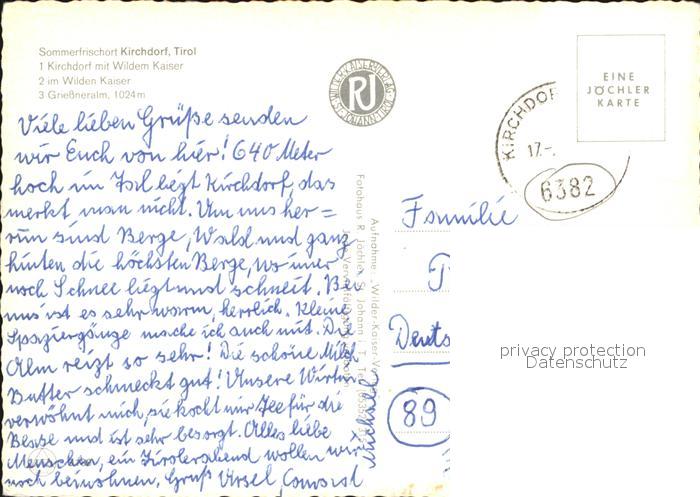 Sommerfrischort Kirchdorf, Tirol
1 Kirchdorf mit Wildem Kaiser
2 im Wilden Kaiser
3 Grießneralm, 1024m
Viele lieben Grüße senden
wir Euch von hier! 640 Meter
hoch im Tal liegt Kirchdorf, das
merkt man nicht. Um uns her=
rum sind Berge, Wald und ganz
hinten die höchsten Berge, wo immer
noch Schnee liegt und schneit. Bei
uns ist es sehr warm, herrlich. Kleine
Spaziergänge mache ich auch mit. Die
Alm reizt so sehr! Die schöne Milch
Butter schmeckt gut! Unsere Wirtin
verwöhnt mich, sie kocht mir Tee für die
und ist sehr besorgt. Alles liebe
Menschen, ein Tirolerabend wollen wir
noch beiwohnen, Gruß Ursel
Michael
WILDER-KAISER-VERLAG
ST. JOHANN-TIROL
RJ
Aufnahme: „Wilder-Kaiser-V
Fotohaus R. Jöchler, St. Johann i. T., Tel.
EINE
JÖCHLER
KARTE
KIRCHDOF
17.-.
6382
Familie
Deuts
89
privacy protection
Datenschutz